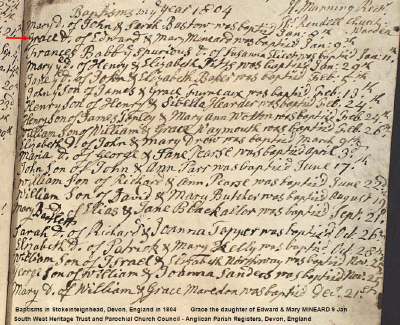 Baptisms in year 1804
Mary D. of John & Sarah Bastow was baptiz'd Jan: 8th
Grace D. of Edward & Mary Mineard was baptiz'd Jan: 9th
Frances Babb y Spurious D. of Susanna was baptiz'd Jan: 11th
Mary D. of Henry & Elizabeth Pitts was baptiz'd Jan: 29th
Jane D. of John & Elizabeth was baptiz'd Feb:
John Son of James & Grace was baptiz'd Feb. 13th
Henry Son of Henry & Sibella Hearder was baptiz'd Feb. 24th
Henry Son of James & Mary Ann Wotton was baptiz'd Feb. 24th
William Son of William & Grace Raymouth was baptiz'd Feb. 26th
Elizabeth D. of John & Mary Drew was baptiz'd March 9th
Maria D. of George & Jane Pearse was baptiz'd April 3d
John Son of John & Ann Parr was baptiz'd June 17th
William Son of Richard & Ann Pearse was baptiz'd June 22nd
William Son of David & Mary Butcher was baptiz'd August 19
Mary Bartlett D. Elias & Jane Blackaller was baptiz'd Sept. 21st
Sarah D. of Richard & Joanna was baptiz'd Oct. 26th
Elizabeth D. of Patrick & Mary Kelly was baptiz'd Oct. 28th
William Son of Israel & Elizabeth Northway was baptiz'd Nov.
George Son of William & Joanna Sanders was baptiz'd Nov. 22
Mary D. of William & Grace Maredon was baptiz'd Dec. 21st
Baptisms in Stokeinteignhead, Devon, England in 1804 Grace the daughter of Edward & Mary MINEARD 9 Jan
South West Heritage Trust and Parochial Church Council - Anglican Parish Registers, Devon, England